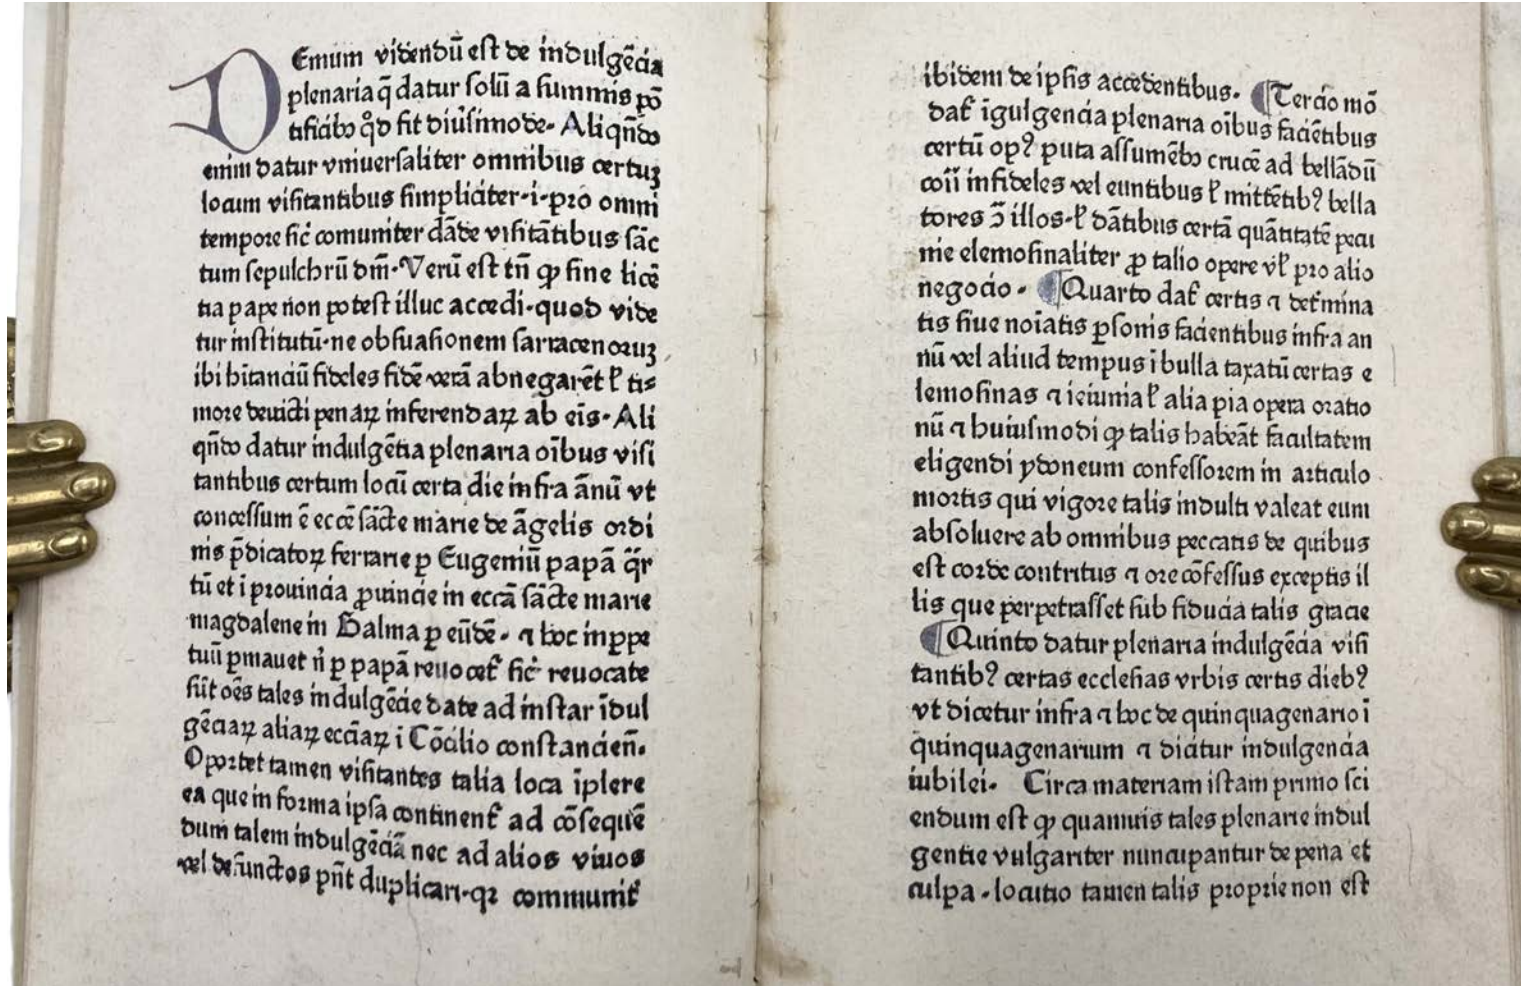 DEmum videndū est de indulgēcia
plenaria q̄ datur solū a summis pō
tificibꝰ qd̄ fit diu̓simode. Aliqn̄do
enim datur vniuersaliter omnibus certuꝫ
locum visitantibus simpliciter.i.pro omni
tempore sic̄ comuniter dāde visitātibus sāc
tum sepulchrū dm̄. Verū est tn̄ ꝙ sine licē
tia pape non potest illuc accedi. quod vide
tur institutū. ne ob suasionem sarracenoruꝫ
ibi hītanciū fideles fidē verā abnegarēt ł ti⸗
more deuicti penaꝝ inferendaꝝ ab eis. Ali
qn̄do datur indulgētia plenaria oībus visi
tantibus certum locū certa die infra ānū vt
concessum ē eccē sācte marie de āgelis ordi
nis p̄dicatoꝝ ferrarie ꝑ Eugeniū papā q̄r
tū et ī prouincia ꝓuincie in eccā sācte marie
magdalene in Balma ꝑ eūdē. ⁊ hoc in ꝑpe
tuū ꝑmanet nͥ ꝑ papā reuocet᷑ sic̄ reuocate
sūt oēs tales indulgēcie date ad instar īdul
gēciaꝝ aliaꝝ ecciaꝝ ī Cōcilio constancien̄.
Oportet tamen visitantes talia loca īplere
ea que in forma ipsa continent᷑ ad cōsequē
dum talem indulgēciā nec ad alios viuos
vel defunctos pn̄t duplicari. qꝛ communit᷑
ibidem de ipsis accedentibus. ¶Tercio mō
dat᷑ īgulgencia plenaria oībus faciētibus
certū opꝰ puta assumēbꝰ crucē ad bellādū
cōtͣ infideles vel euntibus ł mittētibꝰ bella
tores ꝯ̄ illos. ł dātibus certā quātitatē pecu
nie elemosinaliter ꝓ talio opere vł pro alio
negocio. ¶Quarto dat᷑ certis ⁊ det᷑mina
tis siue noīatis ꝑsonis facientibus infra an
nū vel aliud tempus ī bulla taxatū certas e
lemosinas ⁊ ieiunia ł alia pia opera oratio
nū ⁊ huiusmodi ꝙ talis habeāt facultatem
eligendi ydoneum confessorem in articulo
mortis qui vigore talis indulti valeat eum
absoluere ab omnibus peccatis de quibus
est corde contritus ⁊ ore cōfessus exceptis il
lis que perpetrasset sub fiducia talis gracie
¶Quinto datur plenaria indulgēcia visi
tantibꝰ certas ecclesias vrbis certis diebꝰ
vt dicetur infra ⁊ hoc de quinquagenario ī
quinquagenarium ⁊ dicitur indulgencia
iubilei. Circa materiam istam primo sci
endum est ꝙ quamuis tales plenarie indul
gentie vulgariter nuncupantur de pena et
culpa. locutio tamen talis proprie non est